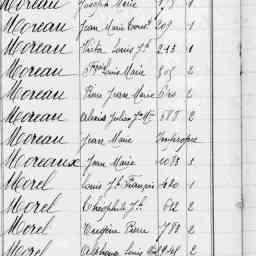 Moreau Joseph Marie 1
Moreau Jean Marie 209 1
Moreau Victor Louis Jh 243 1
Moreau Fçois Louis Marie 305 2
Moreau Pierre Jean Marie 2
Moreau Alexis Julien Jn Mie 588 2
Moreau Jean Marie
Moreaux Jean Marie 1083 1
Morel Louis Jh François 420 1
Morel Théophile Jh 612 2
Morel Eugène Pierre 782 2
Morel Alphonse Louis 2